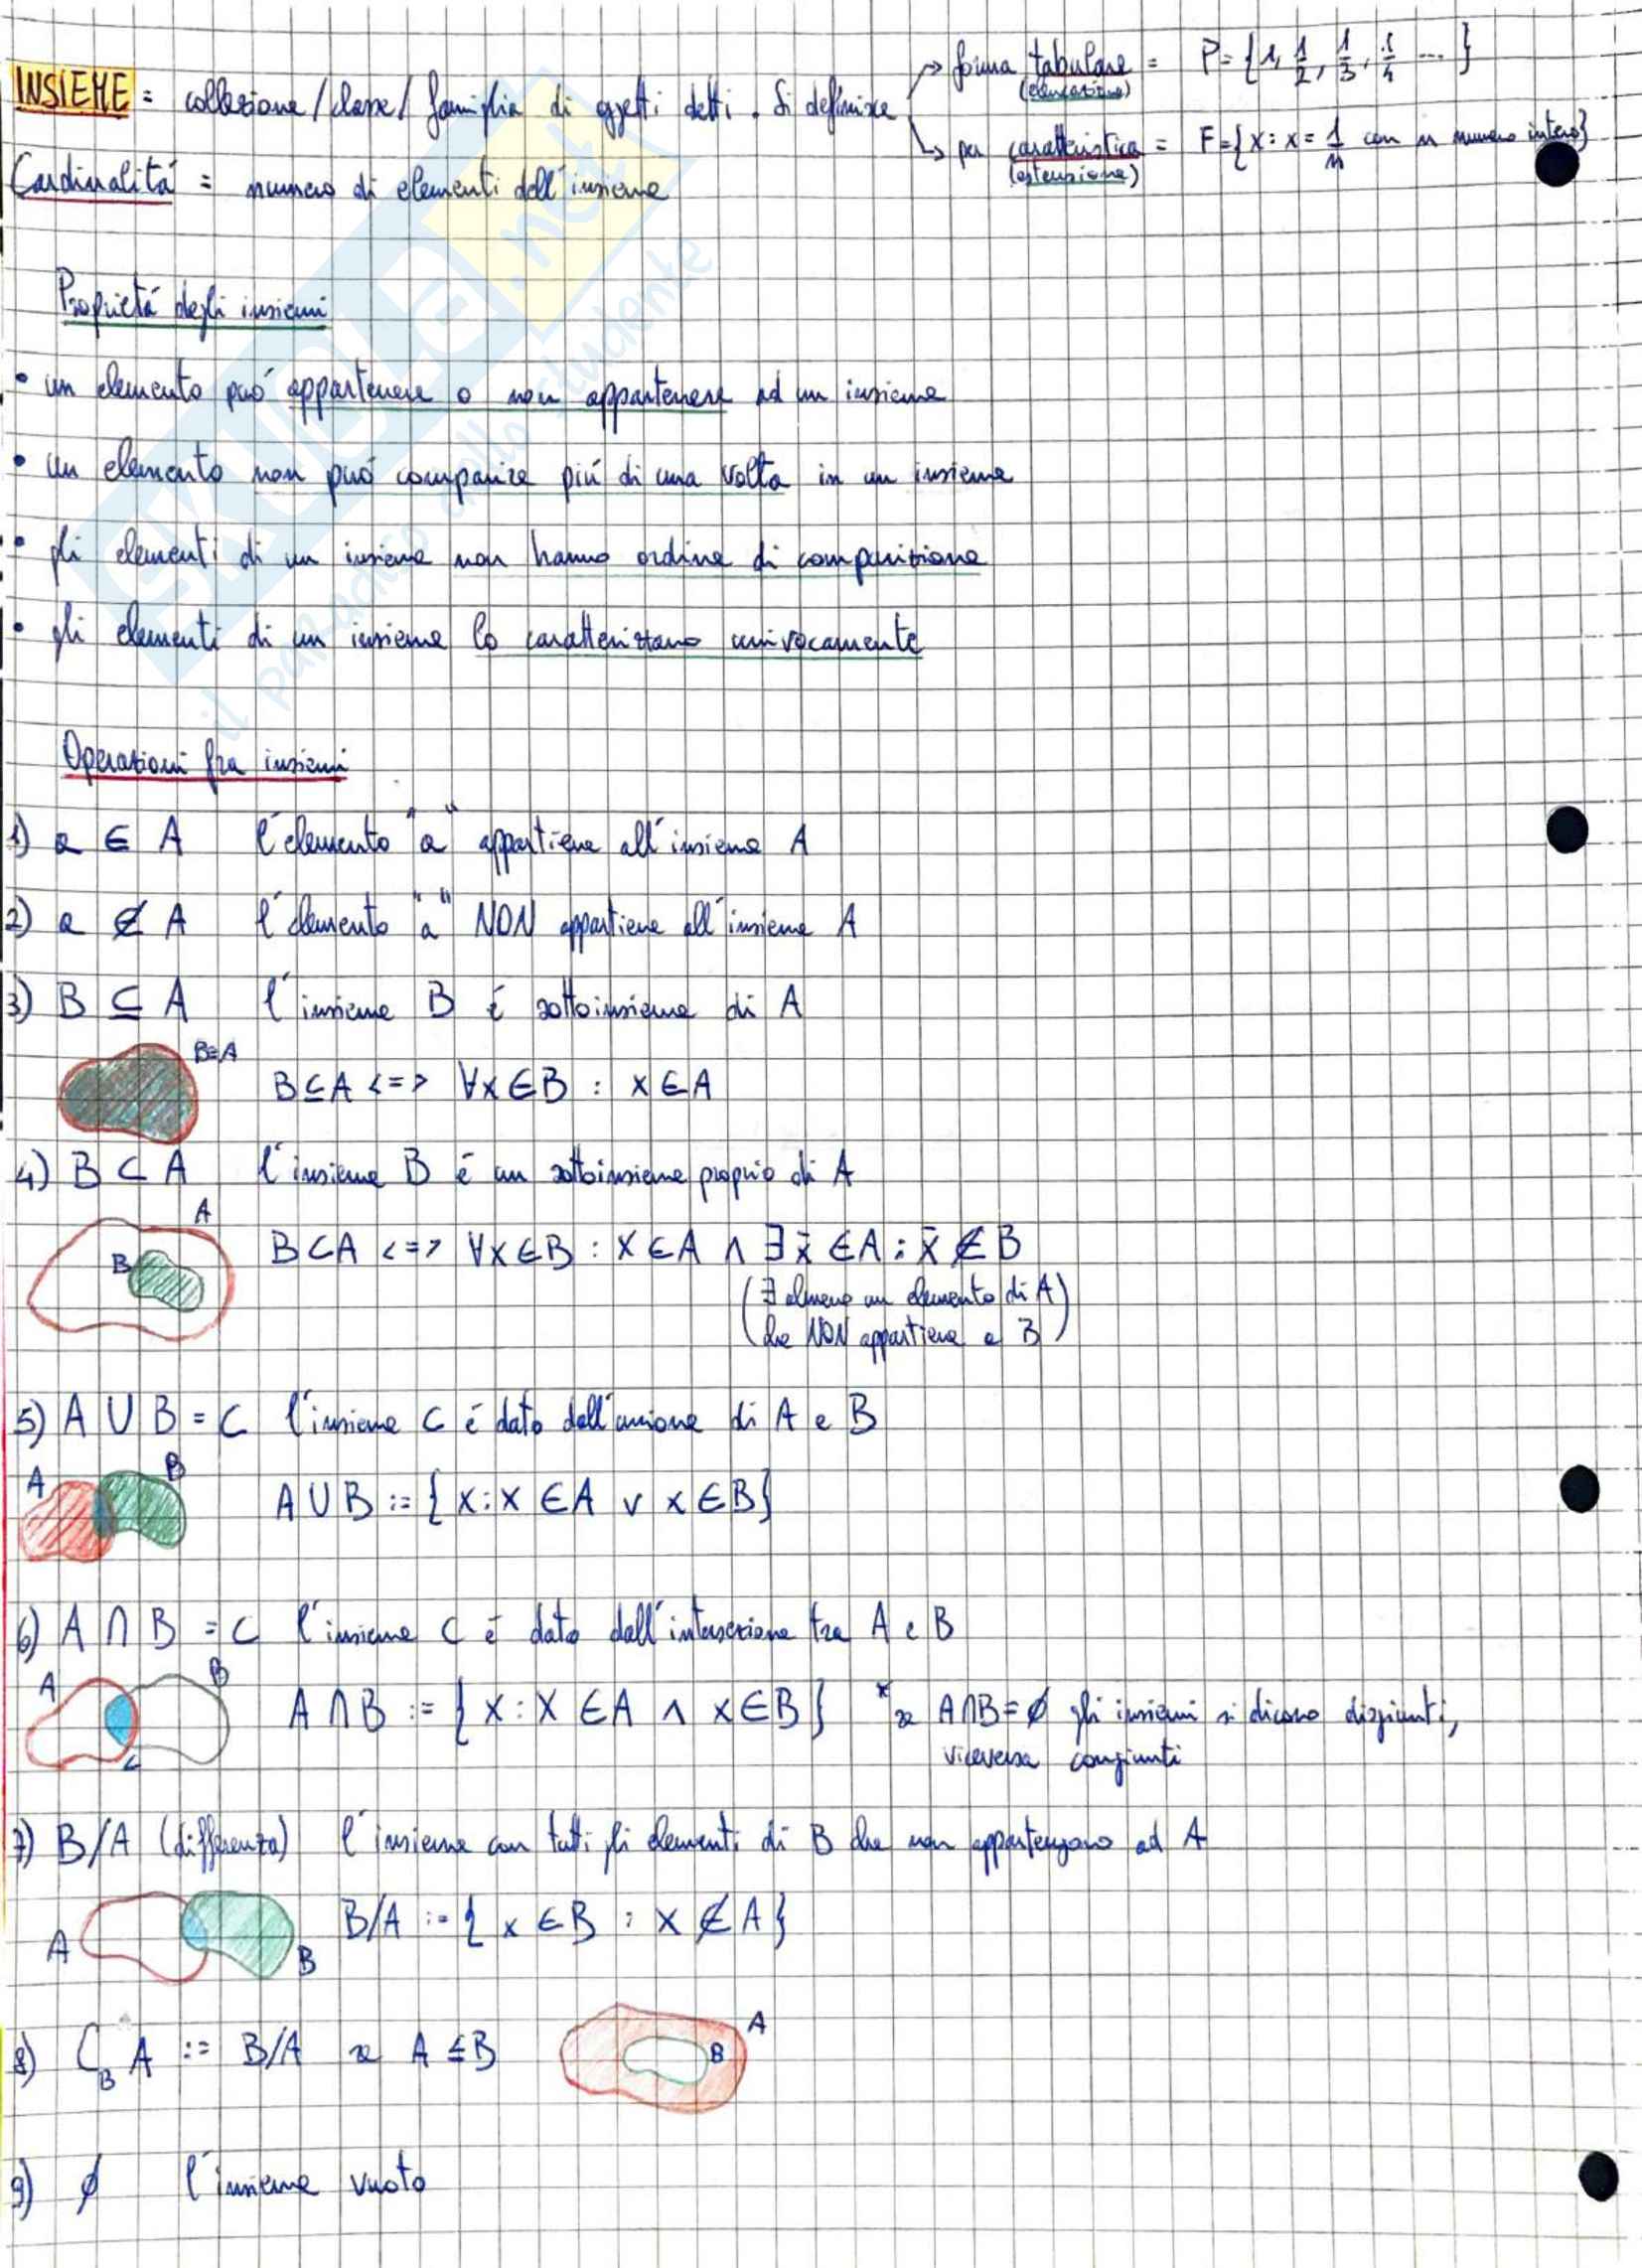 INSIEME = collezione/classe/famiglia di oggetti detti. Si definisce
→ forma tabulare = P={1, 1/2, 1/3, 1/4 ...}
(elencazione)
↳ per caratteristica = F={x : x = 1/n con n numero intero}
(estensione)
Cardinalitá = numero di elementi dell'insieme
Proprietá degli insiemi
• un elemento puó appartenere o non appartenere ad un insieme
• un elemento non puó comparire piú di una volta in un insieme
• gli elementi di un insieme non hanno ordine di comparizione
• gli elementi di un insieme lo caratterizzano univocamente
Operazioni fra insiemi
1) a ∈ A l'elemento "a" appartiene all'insieme A
2) a ∉ A l'elemento "a" NON appartiene all'insieme A
3) B ⊆ A l'insieme B é sottoinsieme di A
B≡A
B⊆A <=> ∀x∈B : x∈A
4) B ⊂ A l'insieme B é un sottoinsieme proprio di A
A
B
B⊂A <=> ∀x∈B : x∈A ∧ ∃x̄ ∈A : x̄ ∉B
(∃ almeno un elemento di A)
(che NON appartiene a B)
5) A ∪ B = C l'insieme C é dato dall'unione di A e B
A B
A ∪ B := {x : x ∈A ∨ x∈B}
6) A ∩ B = C l'insieme C é dato dall'intersezione tra A e B
A B
C
A ∩ B := {x : x ∈A ∧ x∈B} * se A∩B=∅ gli insiemi si dicono disgiunti,
viceversa congiunti
7) B/A (differenza) l'insieme con tutti gli elementi di B che non appartengono ad A
A B
B/A := {x ∈B : x ∉A}
8) C_B A := B/A se A ⊆B
A
B
9) ∅ l'insieme vuoto
SKUOLA.net
il paradiso dello studente